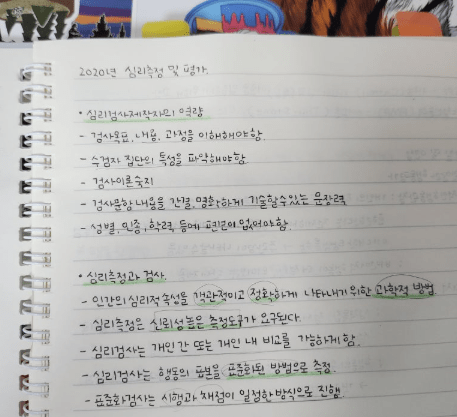 2020년 심리측정 및 평가.
• 심리검사제작자의 역량
- 검사목표, 내용, 과정을 이해해야함.
- 수검자 집단의 특성을 파악해야함.
- 검사이론숙지
- 검사문항내용을 간결, 명확하게 기술할수있는 문장력
- 성별, 인종, 학력 등에 편견이 없어야함.
• 심리측정과 검사.
- 인간의 심리적 속성을 객관적이고 정확하게 나타내기 위한 과학적 방법
- 심리측정은 신뢰성높은 측정도구가 요구된다.
- 심리검사는 개인간 또는 개인 내 비교를 가능하게 함.
- 심리검사는 행동의 표본을 표준화된 방법으로 측정.
- 표준화검사는 시행과 채점이 일정한 방식으로 진행.